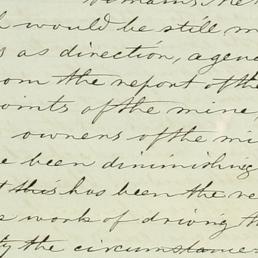 remains the
would be still m
as direction, agen
from the report of the
points of the mine,
owners of the mi
been diminishing
this has been the re
work of driving th
the circumstance